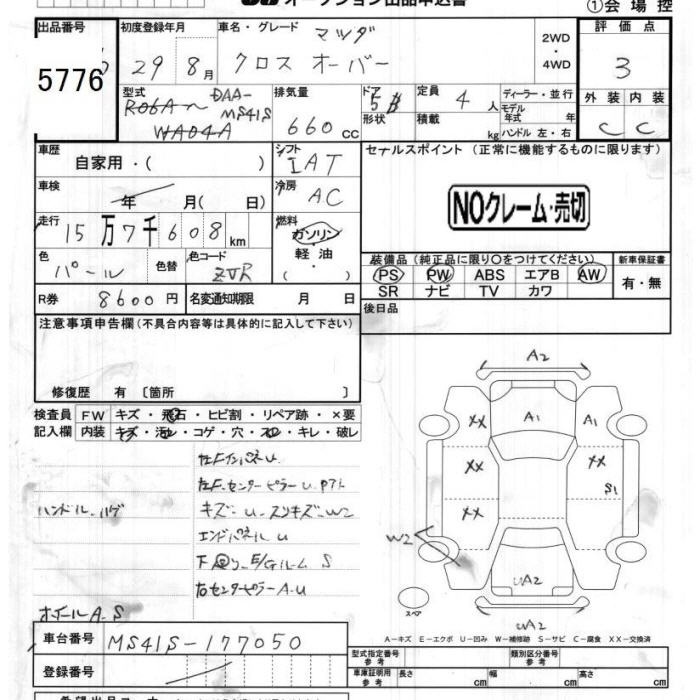 オークション出品申込書
①会場控
出品番号 初度登録年月 車名・グレード マツダ 2WD・4WD 評価点
5776 29 8月 クロスオーバー 3
型式 DAA-MS41S 排気量 660cc ドア 5 形状 定員 4人 積載 kg ディーラー・並行 モデル年式 年式 ハンドル 左・右 外装 C 内装 C
車歴 自家用・( ) シフト IAT セールスポイント (正常に機能するものに限ります)
車検 年 月( 日) 冷房 AC NOクレーム・売切
走行 15万7千608km 燃料 ガソリン・軽油・( )
色 パール 色替 色コード ZVR 装備品(純正品に限り○をつけてください) 新車保証書
PS PW ABS エアB AW 有・無
SR ナビ TV カワ
R券 8600円 名変通知期限 月 日 後日品
注意事項申告欄(不具合内容等は具体的に記入して下さい)
修復歴 有〔箇所 〕
検査員 FW キズ・飛石・ヒビ割・リペア跡・×要
記入欄 内装 キズ・汚レ・コゲ・穴・スレ・キレ・破レ
左FインパネU
左F.センターピラーU.Pアト
ハンドル.ハゲ キズ-U-スリキズ-W2
エンドパネルU
E/Gルーム S
右センターピラーA.U
ホイールA.S
A2
XX A1 A1
XX XX
S1
XX
W2
UA2
スペア UA2
A-キズ E-エクボ U-凹み W-補修跡 S-サビ C-腐食 XX-交換済
車台番号 MS41S-177050
型式指定番号 参考 類別区分番号 参考
登録番号 車庫証明用 参考 長さ cm 幅 cm 高さ cm
希望出品コーナー